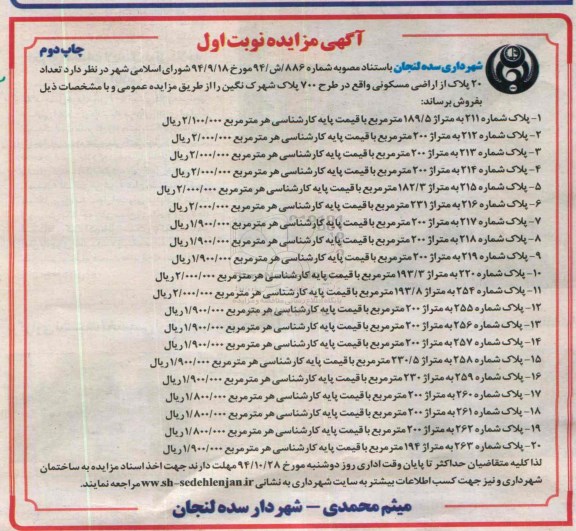 آگهی مزایده نوبت اول
چاپ دوم
شهرداری سده لنجان باستناد مصوبه شماره ۸۸۶/ش/۹۴ مورخ ۹۴/۹/۱۸ شورای اسلامی شهر در نظر دارد تعداد
۲۰ پلاک از اراضی مسکونی واقع در طرح ۷۰۰ پلاک شهرک نگین را از طریق مزایده عمومی و با مشخصات ذیل
بفروش برساند:
۱- پلاک شماره ۲۱۱ به متراژ ۱۸۹/۵ مترمربع با قیمت پایه کارشناسی هر مترمربع ۲/۱۰۰/۰۰۰ ریال
۲- پلاک شماره ۲۱۲ به متراژ ۲۰۰ مترمربع با قیمت پایه کارشناسی هر مترمربع ۲/۰۰۰/۰۰۰ ریال
۳- پلاک شماره ۲۱۳ به متراژ ۲۰۰ مترمربع با قیمت پایه کارشناسی هر مترمربع ۲/۰۰۰/۰۰۰ ریال
۴- پلاک شماره ۲۱۴ به متراژ ۲۰۰ مترمربع با قیمت پایه کارشناسی هر مترمربع ۲/۰۰۰/۰۰۰ ریال
۵- پلاک شماره ۲۱۵ به متراژ ۱۸۲/۳ مترمربع با قیمت پایه کارشناسی هر مترمربع ۲/۰۰۰/۰۰۰ ریال
۶- پلاک شماره ۲۱۶ به متراژ ۲۳۱ مترمربع با قیمت پایه کارشناسی هر مترمربع ۲/۰۰۰/۰۰۰ ریال
۷- پلاک شماره ۲۱۷ به متراژ ۲۰۰ مترمربع با قیمت پایه کارشناسی هر مترمربع ۱/۹۰۰/۰۰۰ ریال
۸- پلاک شماره ۲۱۸ به متراژ ۲۰۰ مترمربع با قیمت پایه کارشناسی هر مترمربع ۱/۹۰۰/۰۰۰ ریال
۹- پلاک شماره ۲۱۹ به متراژ ۲۰۰ مترمربع با قیمت پایه کارشناسی هر مترمربع ۱/۹۰۰/۰۰۰ ریال
۱۰- پلاک شماره ۲۲۰ به متراژ ۱۹۳/۳ مترمربع با قیمت پایه کارشناسی هر مترمربع ۲/۰۰۰/۰۰۰ ریال
۱۱- پلاک شماره ۲۵۴ به متراژ ۱۹۳/۸ مترمربع با قیمت پایه کارشناسی هر مترمربع ۲/۰۰۰/۰۰۰ ریال
۱۲- پلاک شماره ۲۵۵ به متراژ ۲۰۰ مترمربع با قیمت پایه کارشناسی هر مترمربع ۱/۹۰۰/۰۰۰ ریال
۱۳- پلاک شماره ۲۵۶ به متراژ ۲۰۰ مترمربع با قیمت پایه کارشناسی هر مترمربع ۱/۹۰۰/۰۰۰ ریال
۱۴- پلاک شماره ۲۵۷ به متراژ ۲۰۰ مترمربع با قیمت پایه کارشناسی هر مترمربع ۱/۹۰۰/۰۰۰ ریال
۱۵- پلاک شماره ۲۵۸ به متراژ ۲۳۰/۵ مترمربع با قیمت پایه کارشناسی هر مترمربع ۱/۹۰۰/۰۰۰ ریال
۱۶- پلاک شماره ۲۵۹ به متراژ ۲۳۰ مترمربع با قیمت پایه کارشناسی هر مترمربع ۱/۹۰۰/۰۰۰ ریال
۱۷- پلاک شماره ۲۶۰ به متراژ ۲۰۰ مترمربع با قیمت پایه کارشناسی هر مترمربع ۱/۸۰۰/۰۰۰ ریال
۱۸- پلاک شماره ۲۶۱ به متراژ ۲۰۰ مترمربع با قیمت پایه کارشناسی هر مترمربع ۱/۸۰۰/۰۰۰ ریال
۱۹- پلاک شماره ۲۶۲ به متراژ ۲۰۰ مترمربع با قیمت پایه کارشناسی هر مترمربع ۱/۸۰۰/۰۰۰ ریال
۲۰- پلاک شماره ۲۶۳ به متراژ ۱۹۴ مترمربع با قیمت پایه کارشناسی هر مترمربع ۱/۹۰۰/۰۰۰ ریال
لذا کلیه متقاضیان حداکثر تا پایان وقت اداری روز دوشنبه مورخ ۹۴/۱۰/۲۸ مهلت دارند جهت اخذ اسناد مزایده به ساختمان
شهرداری و نیز جهت کسب اطلاعات بیشتر به سایت شهرداری به نشانی ww.sh-sedehlenjan.ir مراجعه نمایند.
میثم محمدی - شهردار سده لنجان